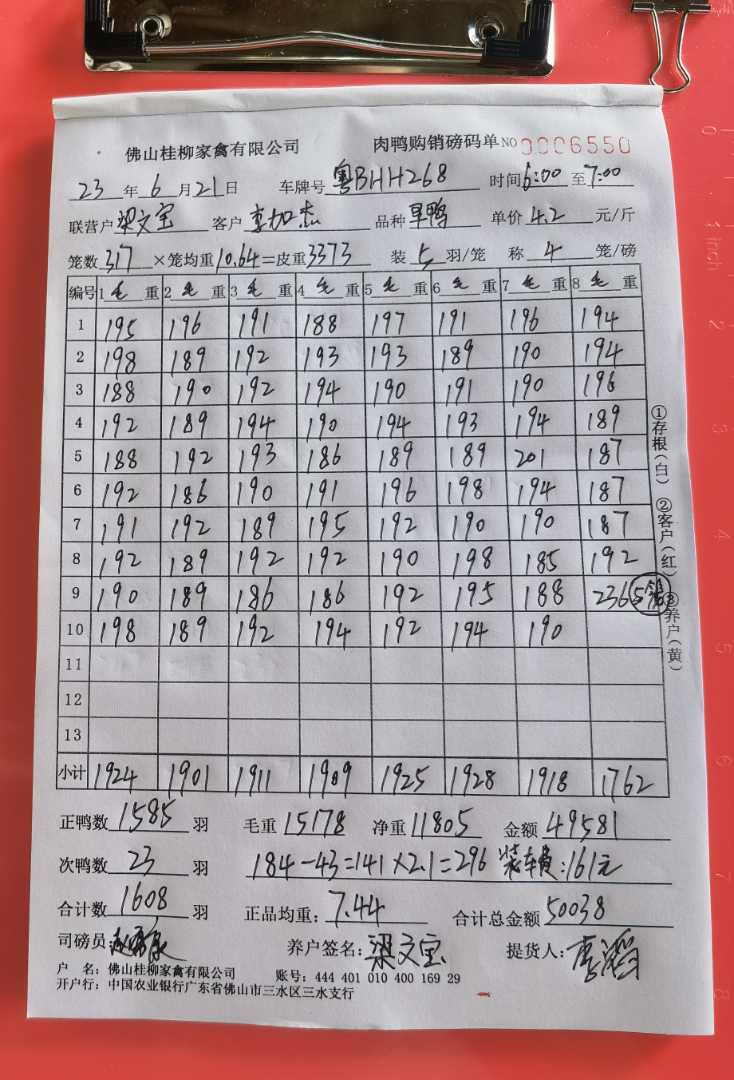 佛山桂柳家禽有限公司 肉鸭购销磅码单 NO 0006550
23 年 6 月 21 日 车牌号 粤BHH268 时间 6:00 至 7:00
联营户 梁文宝 客户 李加杰 品种 旱鸭 单价 4.2 元/斤
笼数 317 ×笼均重 10.64 =皮重 3373 装 5 羽/笼 称 4 笼/磅
编号 1 毛 重 2 毛 重 3 毛 重 4 毛 重 5 毛 重 6 毛 重 7 毛 重 8 毛 重
1 195 196 191 188 197 191 196 194
2 198 189 192 193 193 189 190 194
3 188 190 192 194 190 191 190 196
4 192 189 194 190 194 193 194 189
5 188 192 193 186 189 189 201 187
6 192 186 190 191 196 198 194 187
7 191 192 189 195 192 190 190 187
8 192 189 192 192 190 198 185 192
9 190 189 186 186 192 195 188 236 5笼
10 198 189 192 194 192 194 190
11
12
13
小计 1924 1901 1911 1909 1925 1928 1918 1762
正鸭数 1585 羽 毛重 15178 净重 11805 金额 49581
次鸭数 23 羽 184-43=141×2.1=296 装车费:161元
合计数 1608 羽 正品均重: 7.44 合计总金额 50038
司磅员: 养户签名: 梁文宝 提货人: 李滔
户 名: 佛山桂柳家禽有限公司 账号: 444 401 010 400 169 29
开户行: 中国农业银行广东省佛山市三水区三水支行
①存根(白) ②客户(红) ③养户(黄)